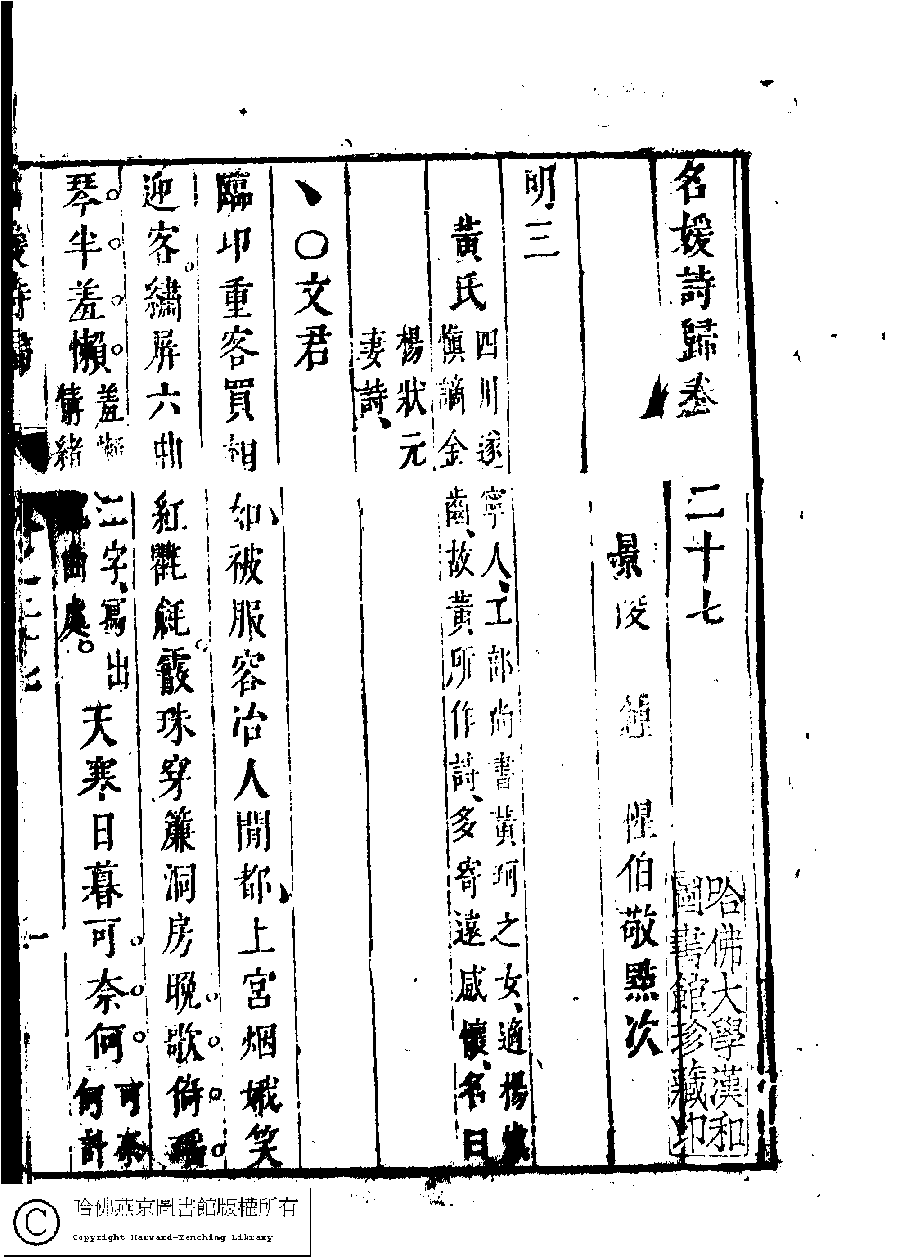 名媛詩歸卷二十七
景陵 鍾 惺伯敬點次
明三
黃氏
四川遂寧人、工部尚書黃珂之女、適楊慎
慎謫金齒、故黃所作詩、多寄遠感懷、名曰
楊狀元
妻詩、
〇文君
臨邛重客買相如、被服容冶人閒都、上宮烟娥笑
迎客。繡屏六曲紅氍毹。霞珠穿簾洞房晚。歌倚瑤。
琴。半。羞。懶。
羞懶二字、寫出
情緒曲處。
天寒日暮可。奈。何。
可奈
何計
哈佛大學漢和
圖書館珍藏印
哈佛燕京圖書館版權所有
Copyright Harvard-Yenching Library